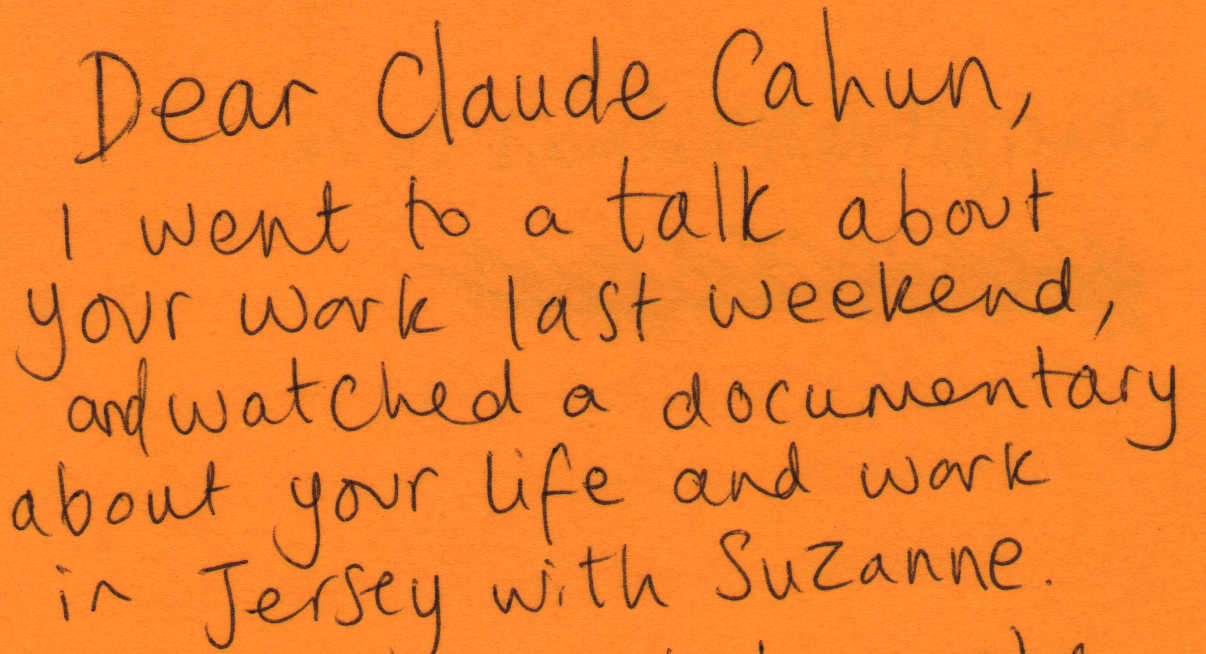 Dear Claude Cahun,
I went to a talk about
your work last weekend,
and watched a documentary
about your life and work
in Jersey with Suzanne.